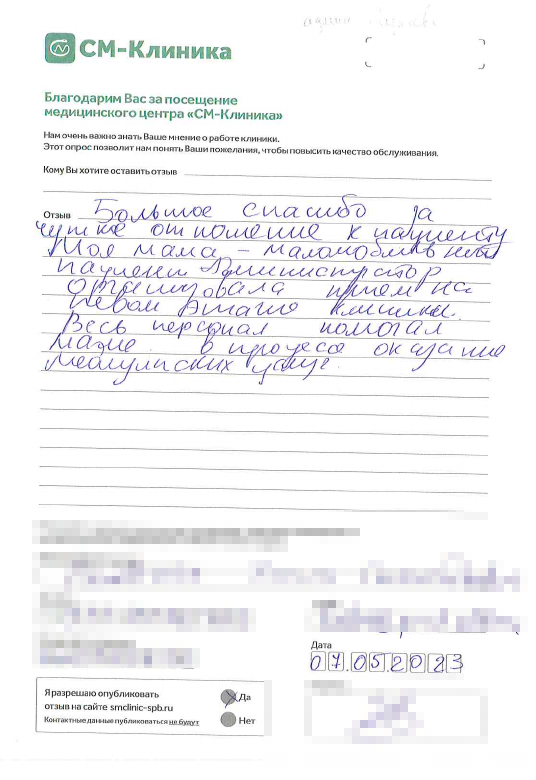 СМ-Клиника
Благодарим Вас за посещение
медицинского центра «СМ-Клиника»
Нам очень важно знать Ваше мнение о работе клиники.
Этот опрос позволит нам понять Ваши пожелания, чтобы повысить качество обслуживания.
Кому Вы хотите оставить отзыв
Отзыв Большое спасибо за
чуткое отношение к пациенту
Моя мама - маломобильный
пациент Администратор
организовала прием на
первом этаже клиники.
Весь персонал помогал
маме в процессе оказание
медицинских услуг.
Дата
07.05.2023
Я разрешаю опубликовать
отзыв на сайте smclinic-spb.ru
Контактные данные публиковаться не будут
Да
Нет